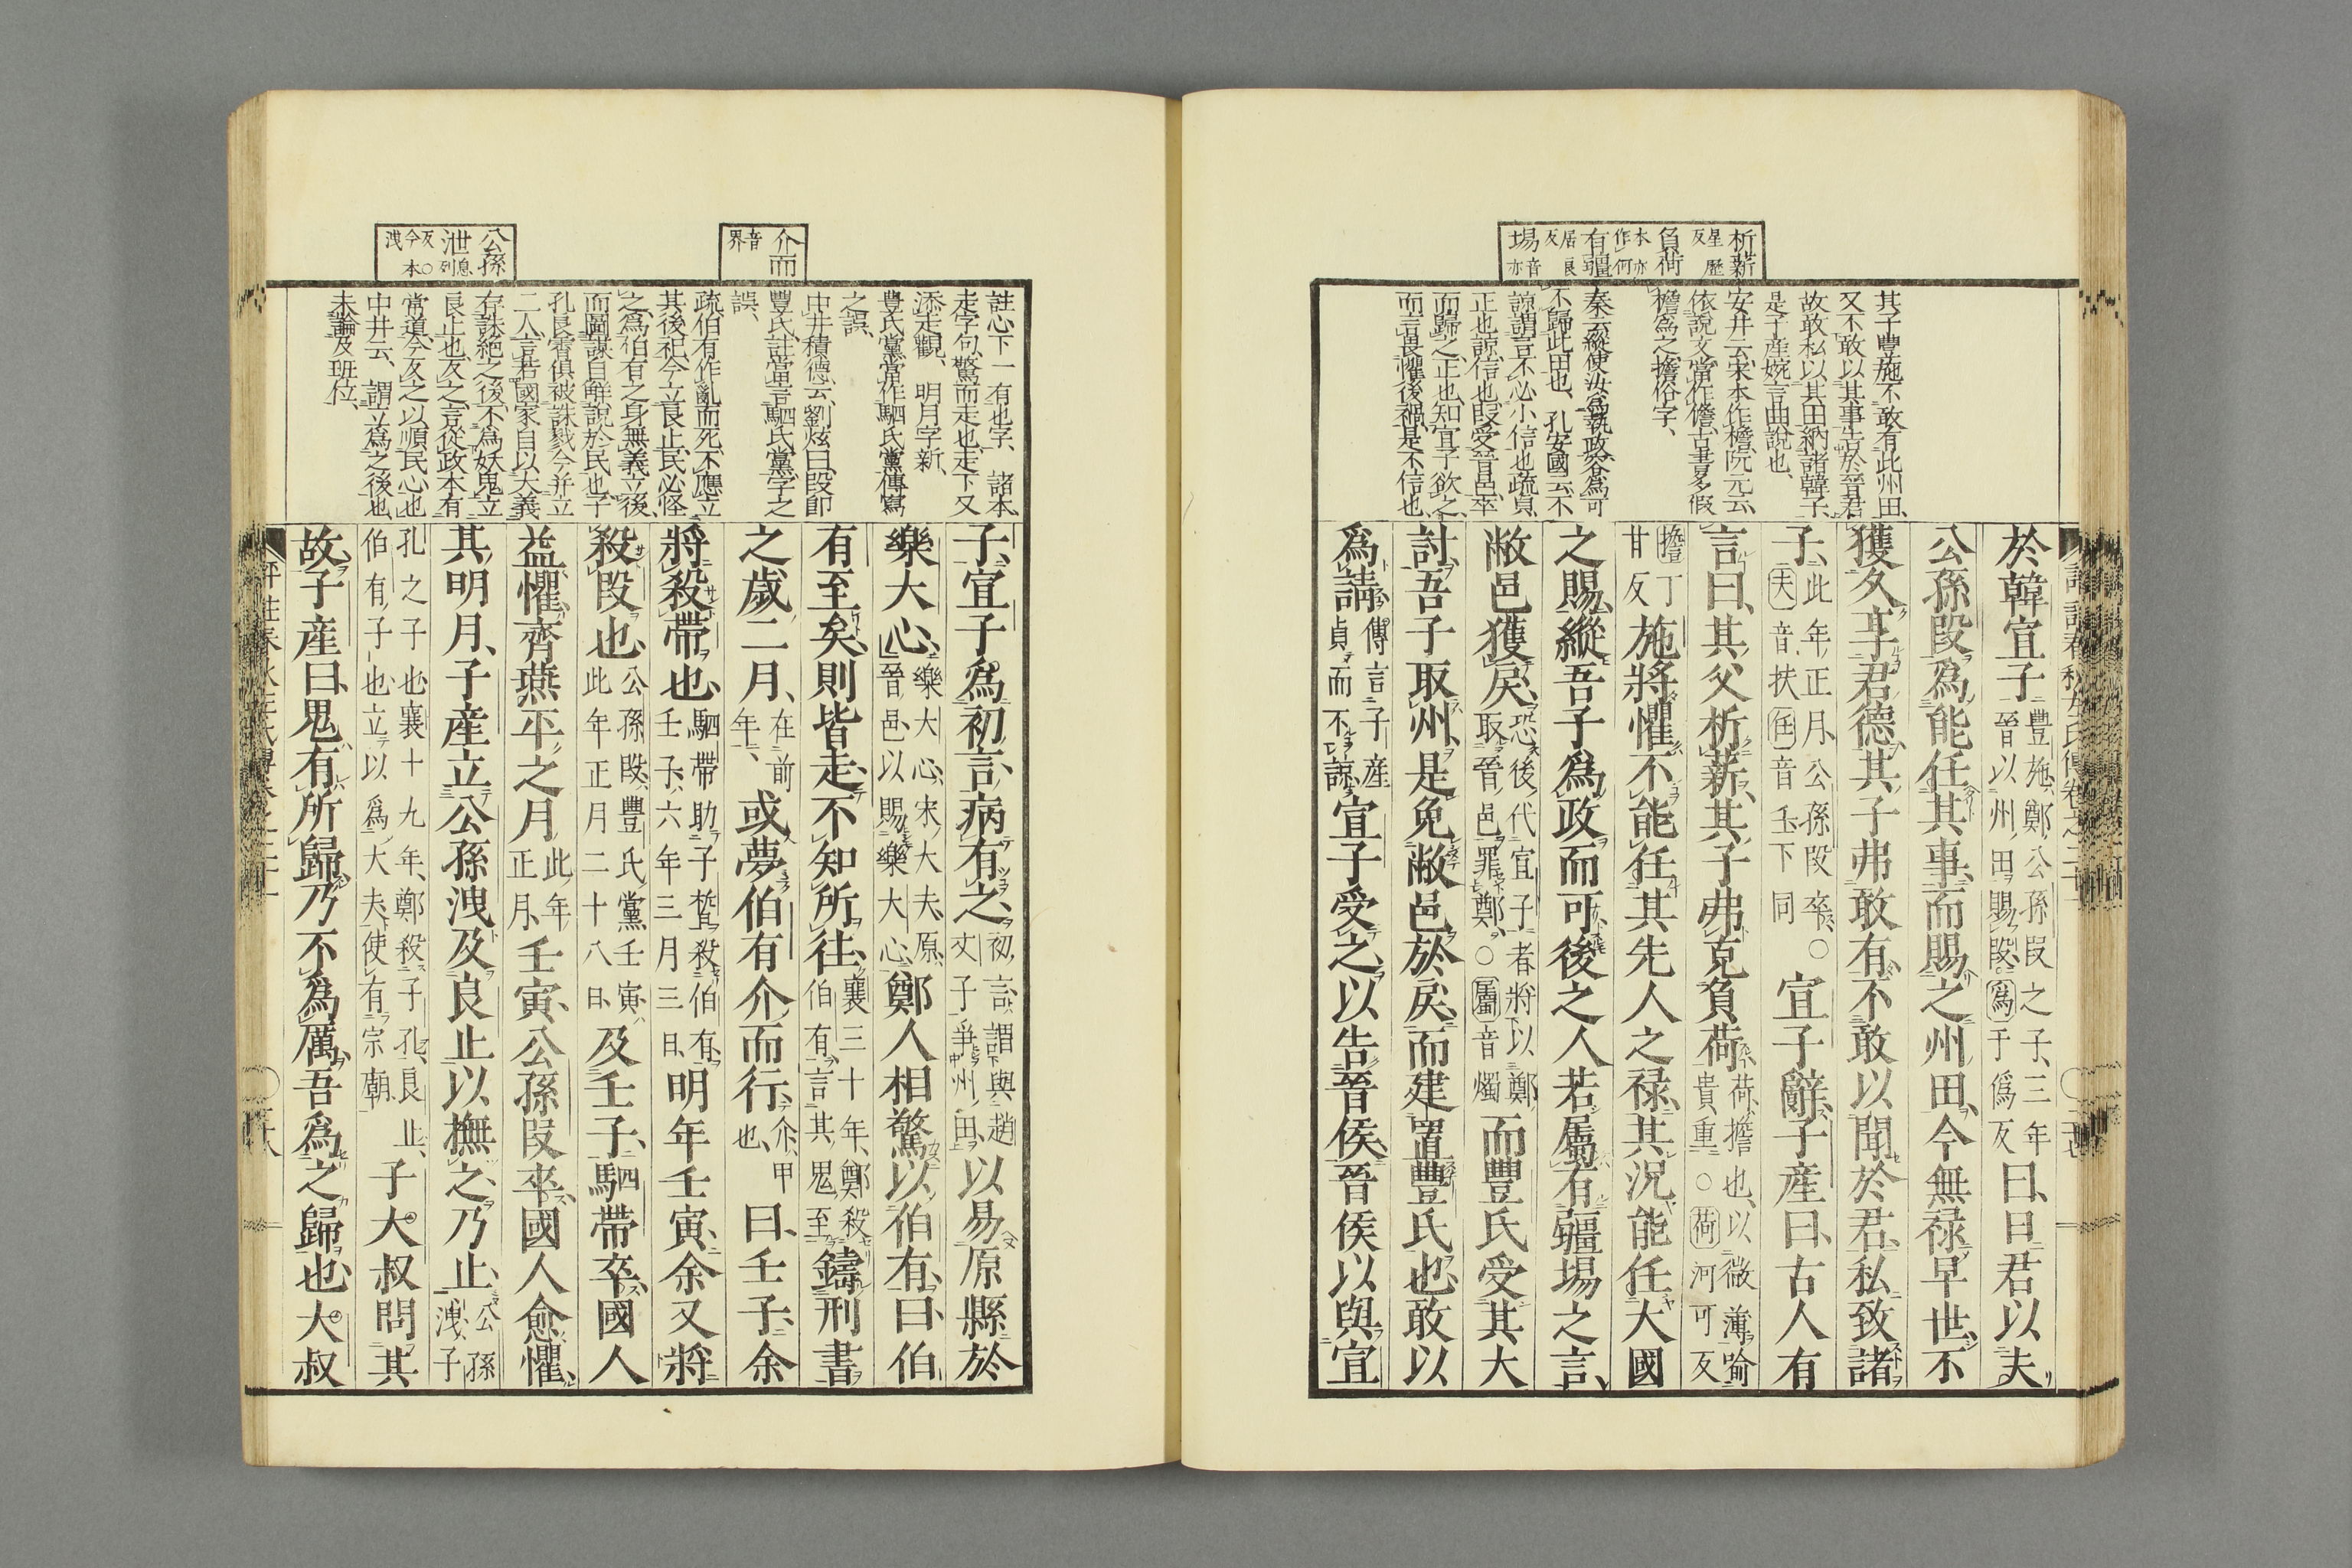 析薪星歷反
負荷本亦作何
有疆居良反
埸音亦
其子豐施不敢有此州田、
又不敢以其事告於晉君
故敢私以其田納諸韓子
是子產婉言曲說也、
安井云、宋本作檐、阮元云、
依說文當作儋、古書多假
檐為之、擔俗字、
秦云縱使汝為執政、容為可
不歸此田也、孔安國云不
諒謂言不必小信也疏貞
正也諒信也段受晉邑卒
而歸之、正也、知宣子欲之、
而言畏懼後禍、是不信也、
於韓宣子豐施、鄭公孫段之子、三年晉以州田賜段、為于偽反曰、日君以夫
公孫段為能任其事、而賜之州田、今無祿早世、不
獲久享君德、其子弗敢有、不敢以聞於君、私致諸
子、此年正月、公孫段卒、○夫音扶任音壬下同宣子辭、子產曰、古人有
言曰、其父析薪、其子弗克負荷、荷、擔也、以微薄喻貴重○荷河可反
擔丁甘反施將懼不能任其先人之祿、其況能任大國
之賜、縱吾子為政而可、後之人若屬有疆埸之言、
敝邑獲戾、恐後代宣子者將以鄭取晉邑罪鄭、○屬音燭而豐氏受其大
討、吾子取州、是免敝邑於戾、而建置豐氏也、敢以
為請、傳言子產貞而不諒宣子受之、以告晉侯、晉侯以與宣
介而音界
公孫泄息列反○今本洩
註、心下一有也字、諸本
走字句、驚而走也、走下又
添走觀、明月字新、
豊氏黨當作駟氏黨、傳寫
之誤、
中井積德云、劉炫曰、段即
豐氏、註當言駟氏黨字之
誤、
疏伯有作亂而死、不應立
其後祀、今立良止、民必怪
之、為伯有之身無義立後、
而圖謀自解說於民也子
孔良霄俱被誅戮今并立
二人、言若國家自以大義
存誅絕之後、不為妖鬼立
良止也、反之、言從政本有
常道、今反之以順民心也
中井云、謂立為之後也、
未論及班位、
子、宣子為初言、病有之、初言、謂與趙文子爭州田以易原縣於
樂大心、樂大心、宋大夫、原、晉邑、以賜樂大心鄭人相驚以伯有、曰、伯
有至矣、則皆走、不知所往、襄三十年、鄭殺伯有、言其鬼至鑄刑書
之歲二月、在前年、或夢伯有介而行、介、甲也、曰、壬子、余
將殺帶也、駟帶助子晳殺伯有、壬子、六年三月三日、明年壬寅、余又將
殺段也、公孫段、豐氏黨、壬寅、此年正月二十八日、及壬子、駟帶卒、國人
益懼、齊燕平之月、此年正月、壬寅、公孫段卒、國人愈懼、
其明月、子產立公孫洩及良止以撫之、乃止、公孫洩、子
孔之子也、襄十九年、鄭殺子孔、良止、伯有子也、立以為大夫、使有宗廟、子大叔問其
故、子產曰、鬼有所歸、乃不為厲、吾為之歸也、大叔